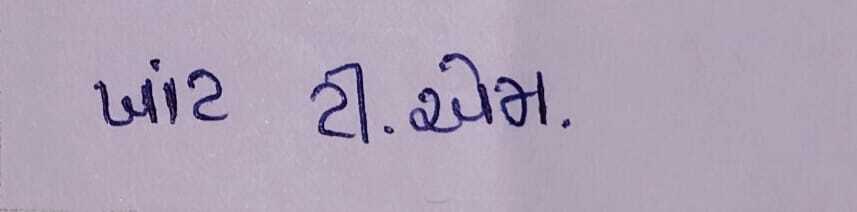 ખાંટ ટી. એમ.